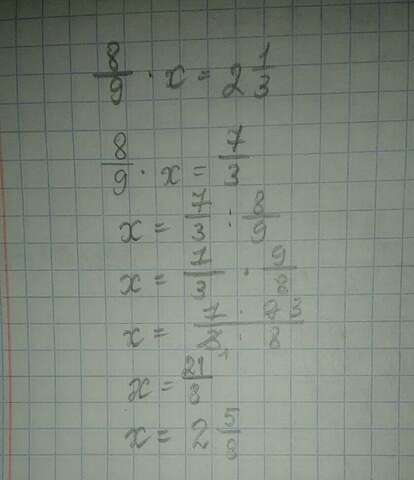 8/9 · x = 2 1/3
8/9 · x = 7/3
x = 7/3 : 8/9
x = 7/3 · 9/8
x = 7 · 9 3 / 3 · 8
x = 21/8
x = 2 5/8